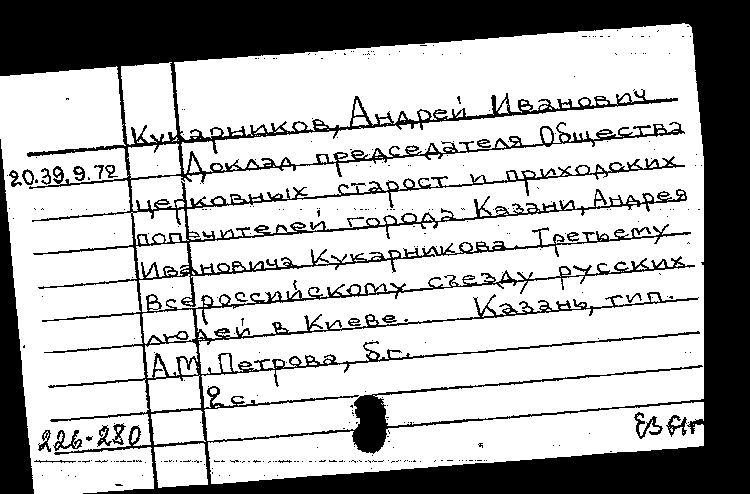 Кукарников, Андрей Иванович
20.39.9.72 Доклад председателя Общества
церковных старост и приходских
попечителей города Казани, Андрея
Ивановича Кукарникова Третьему
Всероссийскому съезду русских
людей в Киеве. Казань, тип.
А.М. Петрова, б.г.
2 с.
226-280